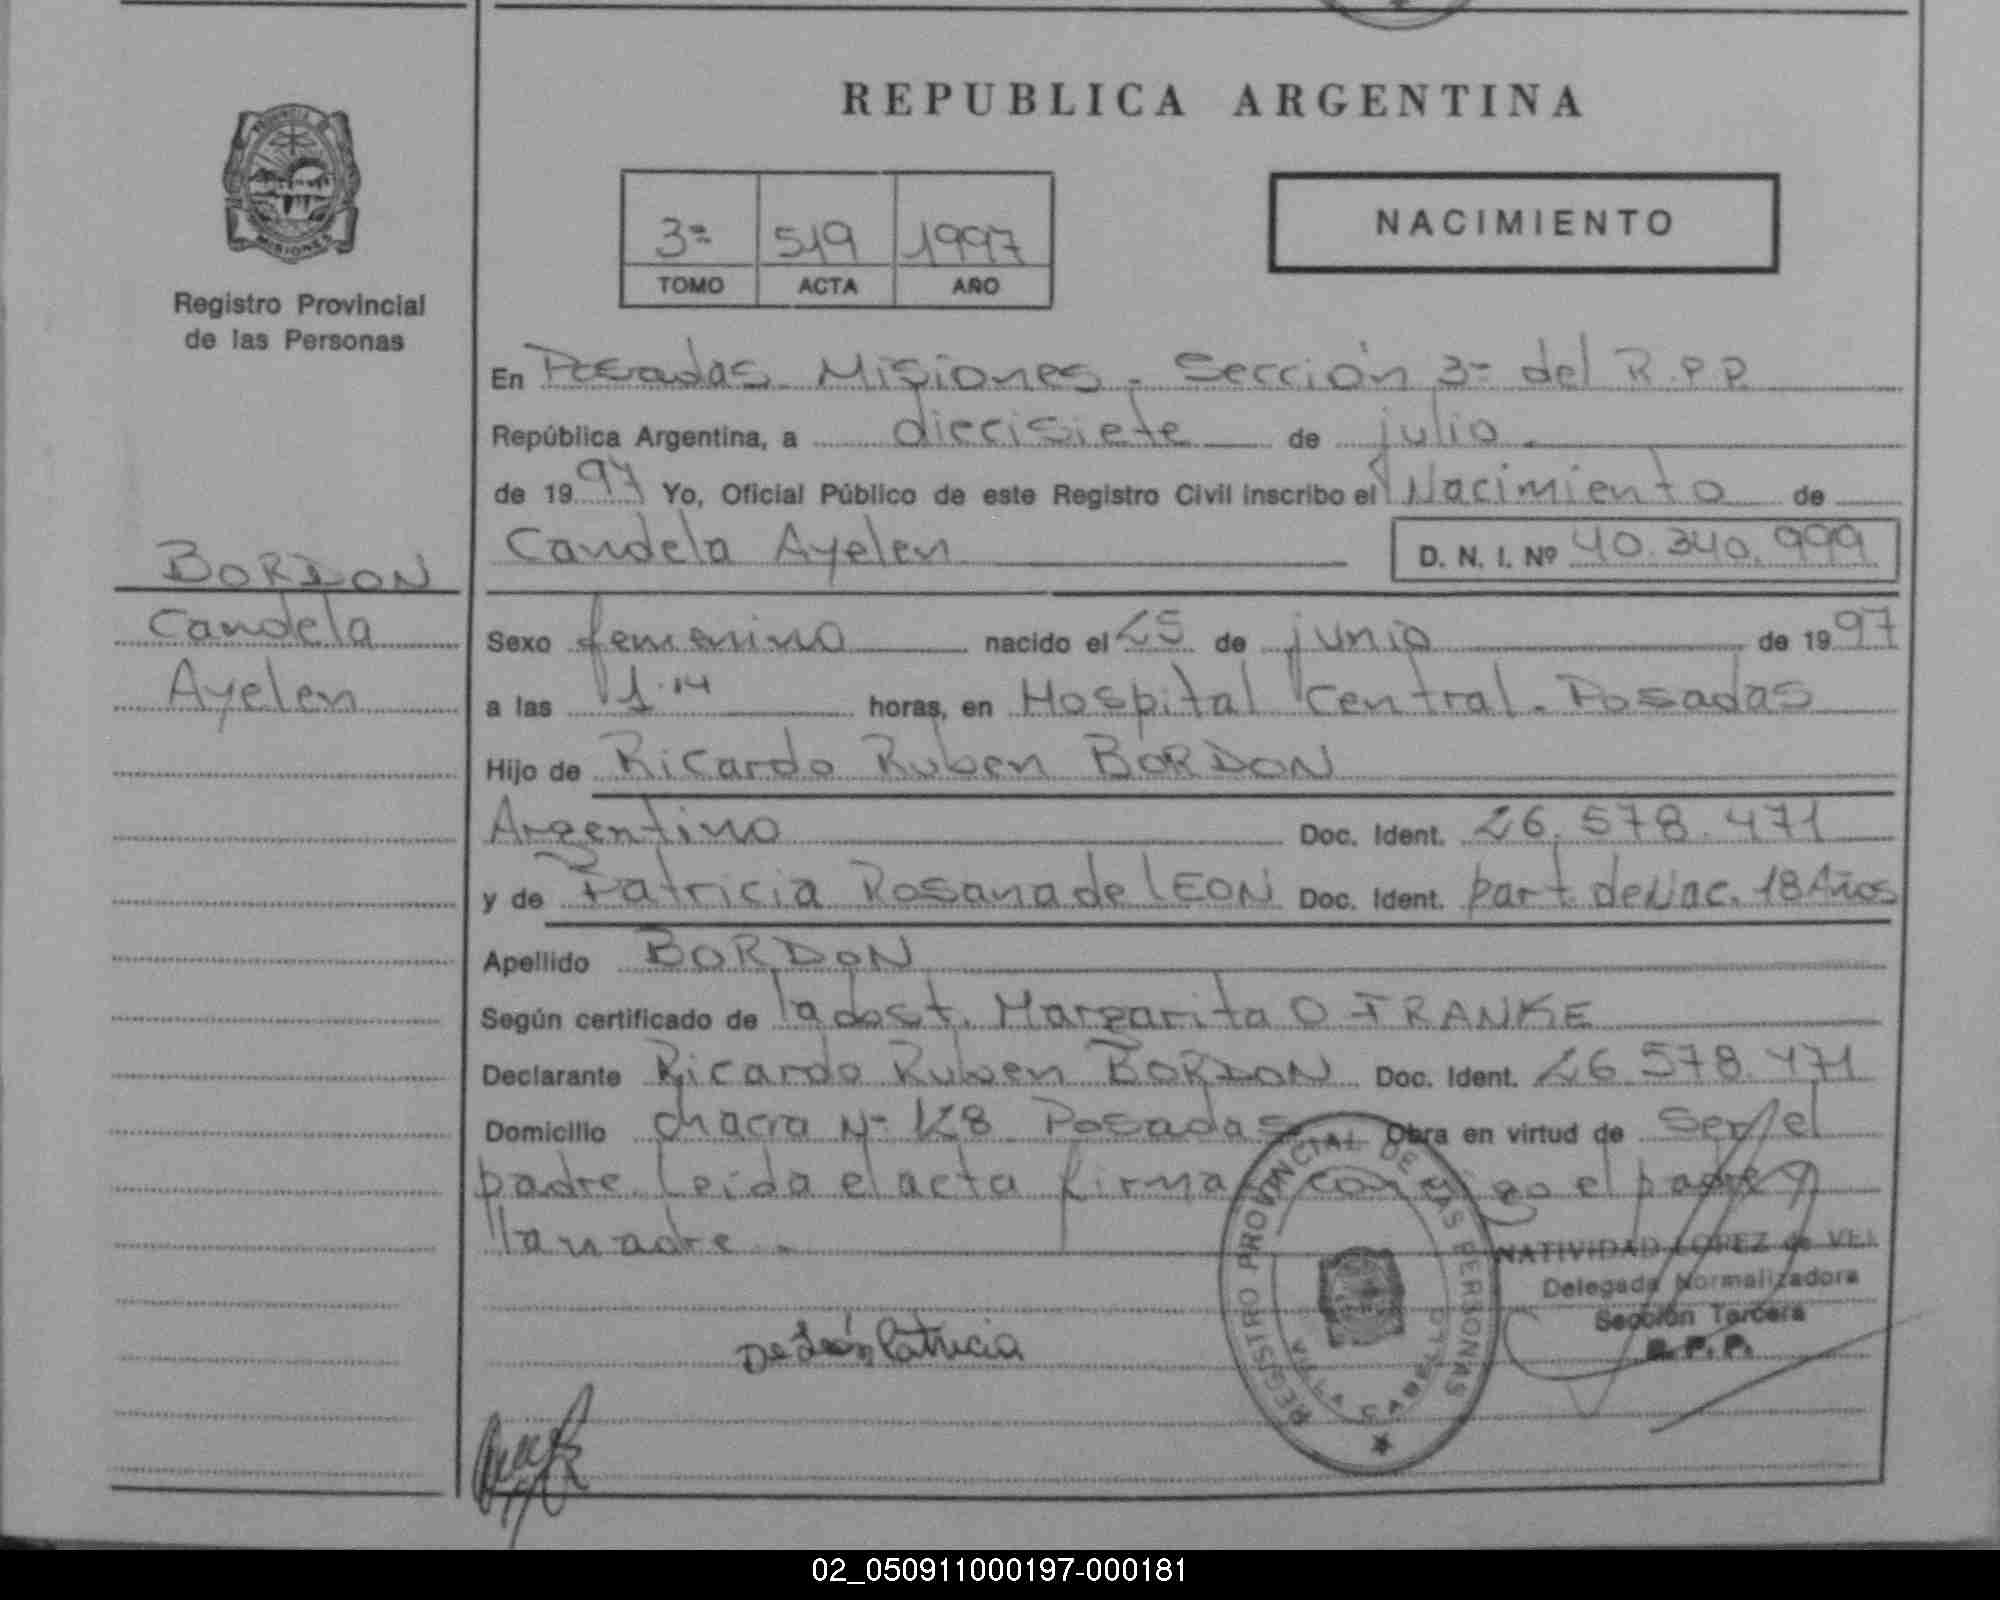 REPUBLICA ARGENTINA
PROVINCIA DE
MISIONES
Registro Provincial
de las Personas
3ª 519 1997
TOMO ACTA AÑO
NACIMIENTO
En Posadas Misiones. Sección 3ª del R.P.P
República Argentina, a diecisiete de julio.
de 1997 Yo, Oficial Público de este Registro Civil inscribo el Nacimiento de
Candela Ayelen D. N. I. Nº 40.340.999
BORDON
Candela
Ayelen
Sexo femenino nacido el 25 de junio de 1997
a las 1.14 horas, en Hospital Central. Posadas
Hijo de Ricardo Ruben BORDON
Argentino Doc. Ident. 26.578.471
y de Patricia Rosana de LEON Doc. Ident. part. de Nac. 18 Años
Apellido BORDON
Según certificado de la obst. Margarita O FRANKE
Declarante Ricardo Ruben BORDON Doc. Ident. 26.578.471
Domicilio chacra Nº 128 Posadas Obra en virtud de ser el
padre. Leida el acta firma conmigo el padre y
la madre.
REGISTRO PROVINCIAL DE LAS PERSONAS
VILLA CABELLO
NATIVIDAD LOPEZ de VEL
Delegada Normalizadora
Sección Tercera
R. P. P.
De León Patricia
02_050911000197-000181